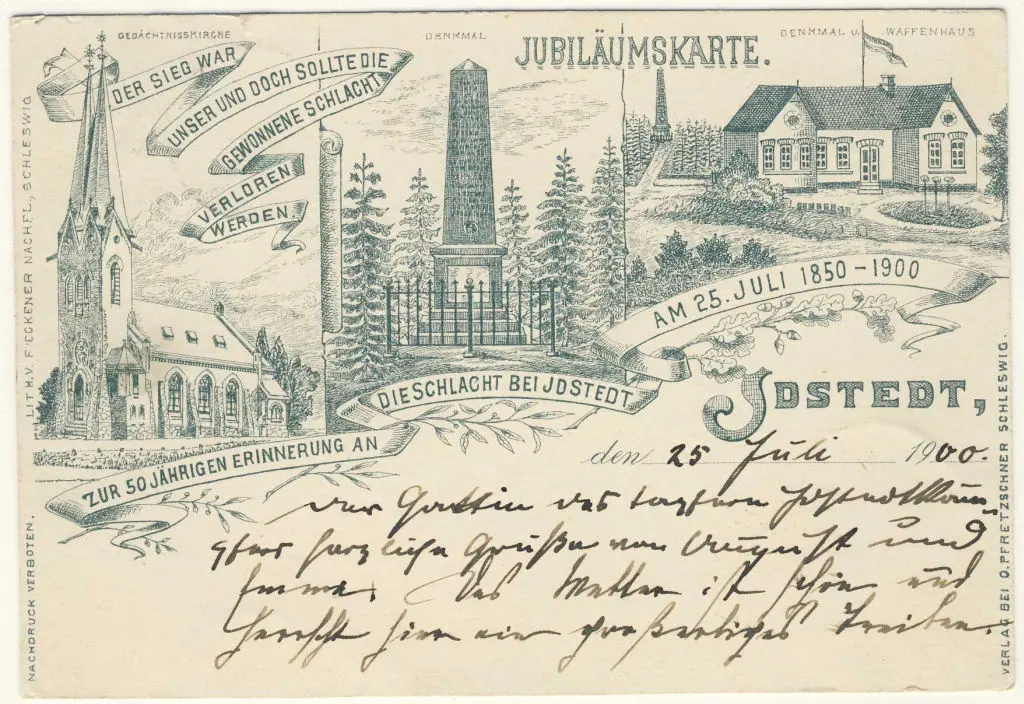 GEDÄCHTNISSKIRCHE
DENKMAL
JUBILÄUMSKARTE.
DENKMAL U. WAFFENHAUS
DER SIEG WAR
UNSER UND DOCH SOLLTE DIE
GEWONNENE SCHLACHT
VERLOREN
WERDEN
ZUR 50 JÄHRIGEN ERINNERUNG AN
DIE SCHLACHT BEI JDSTEDT
AM 25. JULI 1850-1900
JDSTEDT,
den 25 Juli 1900.
der Gattin des tapferen Idstedtkäm-
pfers herzliche Grüße von August und
Emma. Das Wetter ist schön und
herrscht hier ein großartiges Treiben.
LITH. V. F. ECKENER NACHFL., SCHLESWIG
NACHDRUCK VERBOTEN.
VERLAG BEI O. PFRETZSCHNER SCHLESWIG.